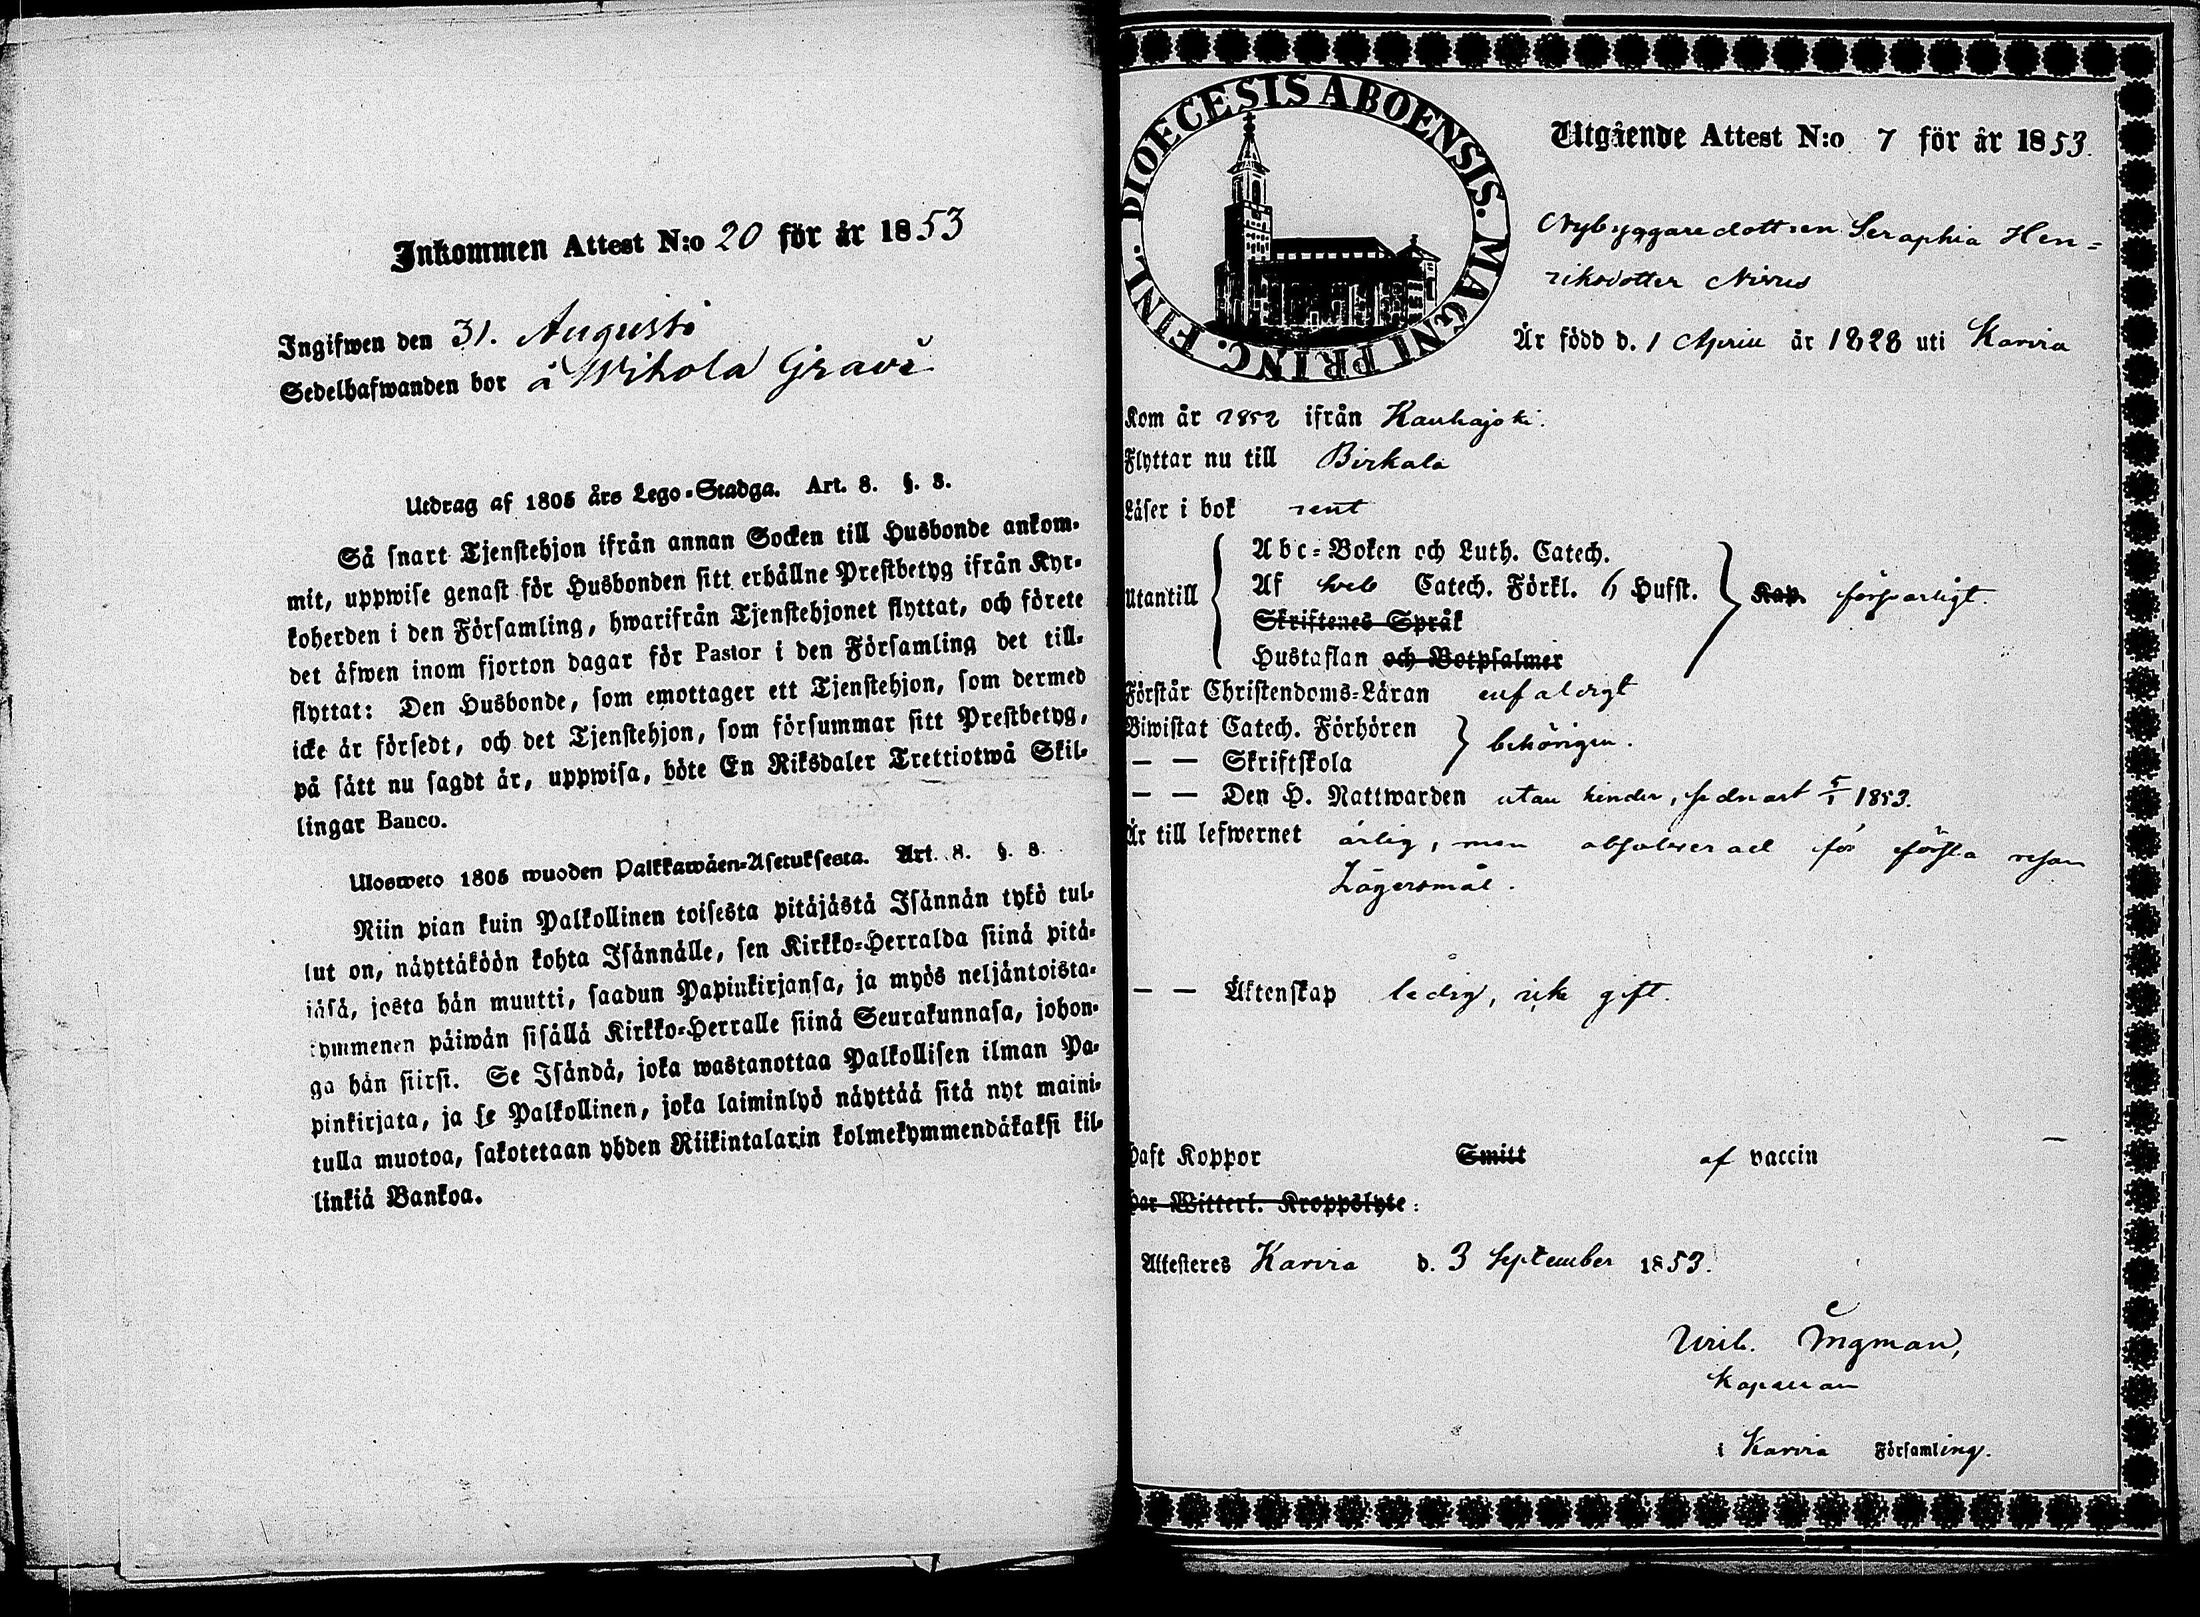 Inkommen Attest N:o 20 för år 1853
Ingifwen den 31. Augusti
Sedelhafwanden bor å Wihola Gravi
Utdrag af 1805 års Lego-Stadga. Art. 8. §. 8.
Så snart Tjenstehjon ifrån annan Socken till Husbonde ankom-
mit, uppwise genast för Husbonden sitt erhållne Prestbetyg ifrån Kyr-
koherden i den Församling, hwarifrån Tjenstehjonet flyttat, och förete
det äfwen inom fjorton dagar för Pastor i den Församling det till-
flyttat: Den Husbonde, som emottager ett Tjenstehjon, som dermed
icke är försedt, och det Tjenstehjon, som försummar sitt Prestbetyg,
på sätt nu sagdt är, uppwisa, böte En Riksdaler Trettiotwå Skil-
lingar Banco.
Ulosweto 1805 wuoden Palkkawäen-Asetuksesta. Art. 8. §. 8.
Niin pian kuin Palkollinen toisesta pitäjästä Isännän tykö tul-
lut on, näyttäköön kohta Isännälle, sen Kirkko-Herralda siinä pitä-
jäsä, josta hän muutti, saadun Papinkirjansa, ja myös neljäntoista-
kymmenen päiwän sisällä Kirkko-Herralle siinä Seurakunnasa, johon-
ga hän siirsi. Se Isändä, joka wastanottaa Palkollisen ilman Pa-
pinkirjata, ja se Palkollinen, joka laiminlyö näyttää sitä nyt maini-
tulla muotoa, sakotetaan yhden Riikintalarin kolmekymmendäkaksi kil-
linkiä Bankoa.
DIOECESIS ABOENSIS. MAGNI PRINC. FINL.
Utgående Attest N:o 7 för år 1853.
Nybyggaredottren Seraphia Hen-
riksdotter Nirus
Är född d. 1 April år 1828 uti Karvia
Kom år 1852 ifrån Kauhajoki.
Flyttar nu till Birkala
Läser i bok rent
Utantill
Abc-Boken och Luth. Catech.
Af Catech. Förkl. 6 Hufst. Kap. försvarligt.
Skriftenes Språk
Hustaflan och Botpsalmer
Förstår Christendoms-Läran enfaldigt
Biwistat Catech. Förhören
behörigen.
— — Skriftskola
— — Den H. Nattwarden utan hinder, sednast 5/1 1853.
Är till lefwernet ärlig, men absolverad för första resan
Lägersmål.
— — Äktenskap ledig, icke gift.
Haft Koppor Smitt af vaccin
Har Witterl. Kroppslyte:
Attesteres Karvia d. 3 September 1853.
Ingman,
Kapellan
i Karvia Församling.